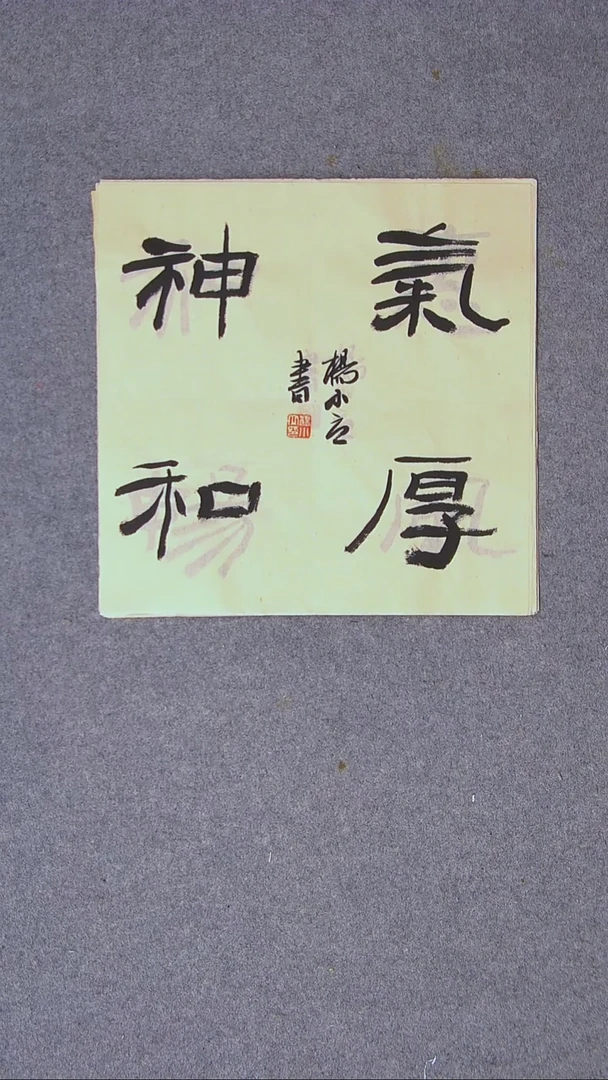 氣厚
神和
楊小立
書